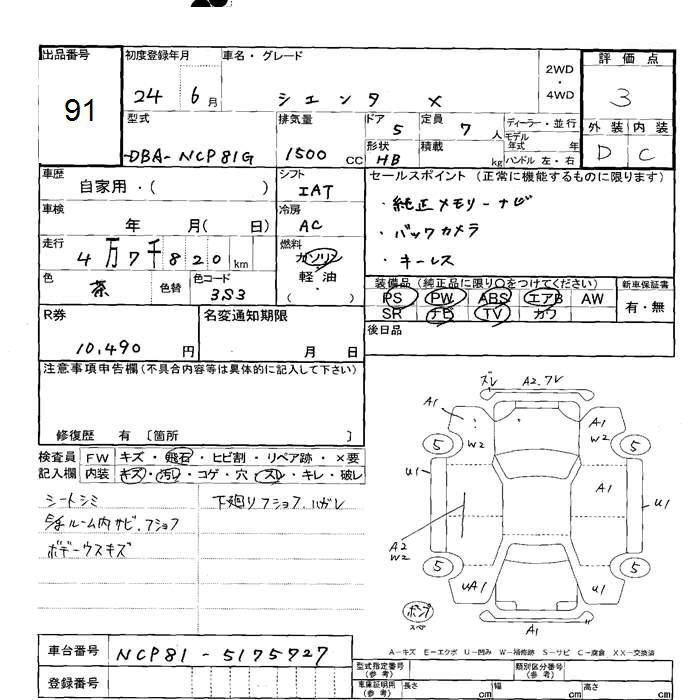 出品番号 初度登録年月 車名・グレード 評価点
91 24 6月 シエンタ X 2WD・4WD 3
型式 排気量 ドア 定員 ディーラー・並行 外装 内装
DBA-NCP81G 1500 CC 5 7 人 モデル年式 年 D C
形状 積載 kg ハンドル 左・右
HB
車歴 シフト セールスポイント (正常に機能するものに限ります)
自家用・( ) IAT
・純正メモリーナビ
車検 冷房
年 月( 日) AC ・バックカメラ
走行 燃料
4万7千820km ガソリン ・キーレス
軽油
( )
色 色替 色コード 装備品(純正品に限り○をつけてください) 新車保証書
茶 3S3 PS PW ABS エアB AW 有・無
SR TV カワ
R券 名変通知期限 後日品
10,490 円 月 日
注意事項申告欄(不具合内容等は具体的に記入して下さい)
修復歴 有 〔箇所 〕
検査員 FW キズ・飛石・ヒビ割・リペア跡・×要
記入欄 内装 キズ・汚レ・コゲ・穴・スレ・キレ・破レ
シートシミ 下廻りフショフ.ハガレ
ルーム内サビ.フショフ
ボデーウスキズ
ズレ A2.7V
A1 A1
W2 W2
5 5
U1 A1 U1
A2
W2
5 5
UA1 U1
ポンプ
スペア
A1
A-キズ E-エクボ U-凹み W-補修跡 S-サビ C-腐食 XX-交換済
車台番号 NCP81-5175727
型式指定番号(参考) 類別区分番号(参考)
登録番号 車庫証明用(参考) 長さ cm 幅 cm 高さ cm